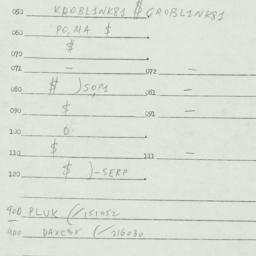 050 KROBLINK81 $ GROBLINK81
060 PO, MA $
070 $
071 - 072 -
080 # ) SOM 081 -
090 $ 091 -
100 0
110 $ 111 -
120 $ )-SERP
900 PLUK (/151052
900 DAXCSK (/216030